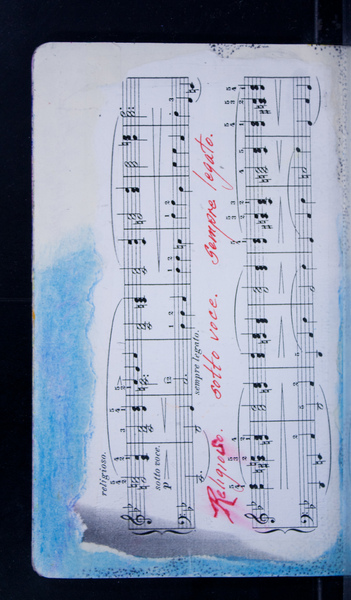 religioso.
sotto voce.
p
sempre legato.
Religioso. sotto voce. sempre legato.